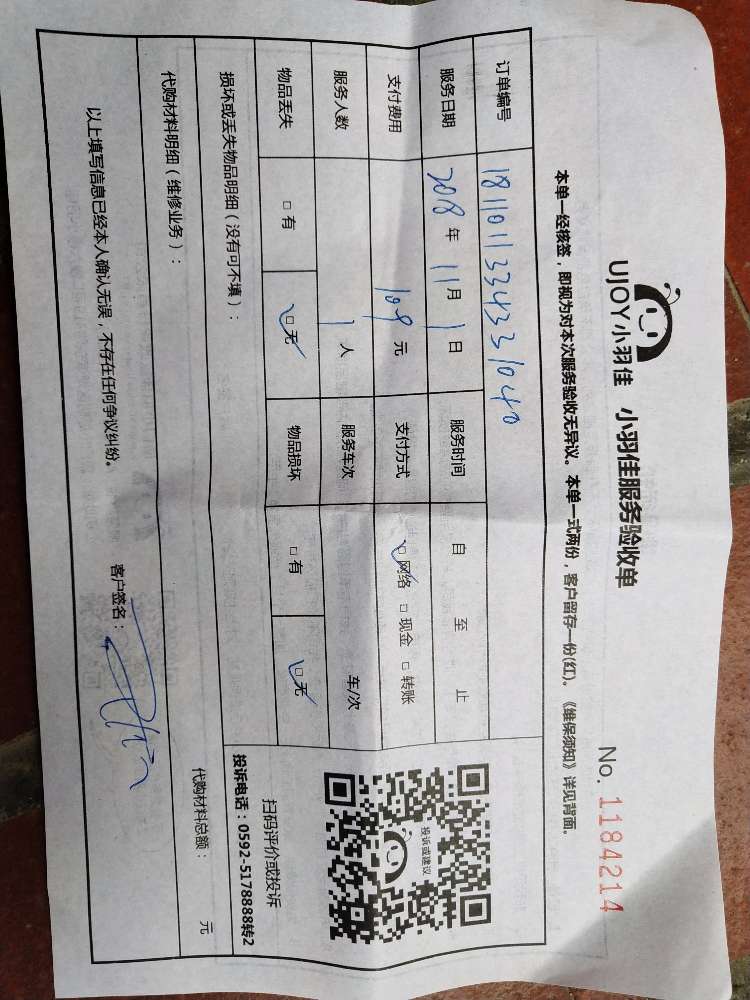 UJOY小羽佳 小羽佳服务验收单
No. 1184214
本单一经核签，即视为对本次服务验收无异议。本单一式两份，客户留存一份(红)。《维保须知》详见背面。
订单编号 18110113343331040
服务日期 2018 年 11 月 1 日 服务时间 自 至 止
支付费用 109 元 支付方式 □网络 □现金 □转账
服务人数 1 人 服务车次 车/次
物品丢失 □有 □无 物品损坏 □有 □无
投诉或建议
扫码评价或投诉
投诉电话：0592-5178888转2
损坏或丢失物品明细（没有可不填）：
代购材料明细（维修业务）： 代购材料总额： 元
以上填写信息已经本人确认无误，不存在任何争议纠纷。
客户签名：